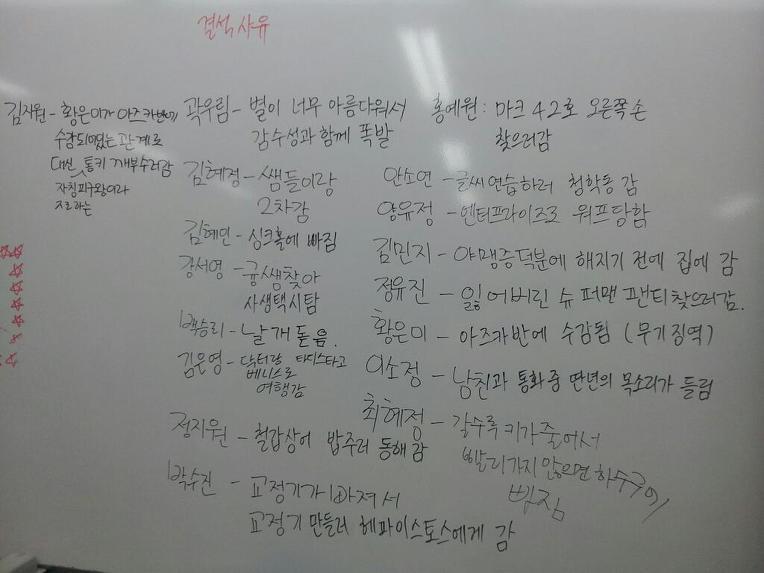 결석 사유
김자원 - 황은이가 아즈카반에
수감되어있는 관계로
대신 통키 깨부수러감
자칭피구왕이라
곽우림 - 별이 너무 아름다워서
감수성과 함께 폭발
홍예원 : 마크 42호 오른쪽 손
찾으러감
김혜정 - 쌤들이랑
2차감
안소연 - 글씨연습하러 청학동 감
양유정 - 엔터프라이즈로 워프당함
김혜인 - 싱크홀에 빠짐
김민지 - 야맹증덕분에 해지기 전에 집에 감
강서영 - 귱쌤찾아
사생택시탐
정유진 - 잃어버린 슈퍼맨 팬티찾으러감.
백승리 - 날개 돋음.
황은미 - 아즈카반에 수감됨 (무기징역)
김은영 - 닥터랑 타디스타고
베니스로
여행감
이소정 - 남친과 통화 중 딴년의 목소리가 들림
정지원 - 철갑상어 밥주러 동해감
최혜정 - 갈수록 키가 줄어서
빨리가지 않으면 하수구에
빠짐
박수진 - 교정기가 빠져서
교정기 만들러 헤파이스토스에게 감